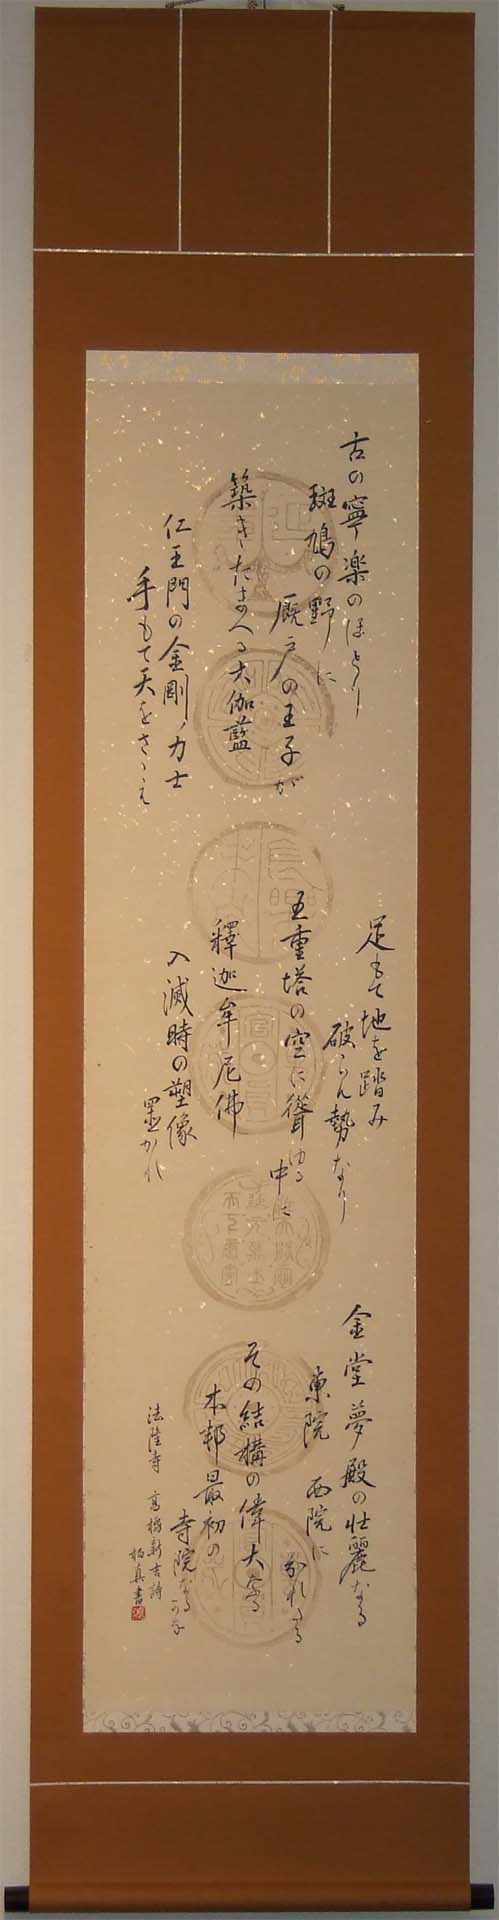 古の寧楽のほとり
斑鳩の野に
厩戸の王子が
築きたまへる大伽藍
仁王門の金剛力士
手もて天をさゝえ
足もて地を踏み
破らん勢なり
五重塔の空に聳ゆる
中に
釋迦牟尼佛
入滅時の塑像
置かれ
金堂夢殿の壮麗なる
東院 西院に
別れたる
その結構の偉大なる
本邦最初の
寺院なる
法隆寺 高橋新吉詩
書